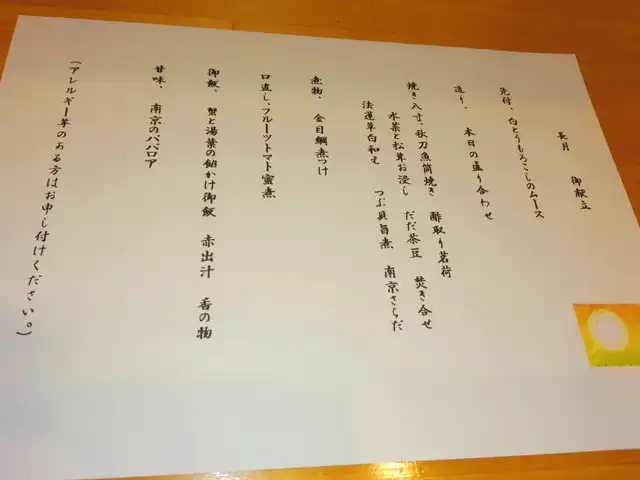 長月　御献立
先付、白とうもろこしのムース
造り、本日の盛り合わせ
焼き八寸、秋刀魚筒焼き　酢取り茗荷
水菜と松茸お浸し　だだ茶豆　焚き合せ
法蓮草白和え　つぶ貝旨煮　南京さらだ
煮物、金目鯛煮つけ
口直し、フルーツトマト蜜煮
御飯、蟹と湯葉の餡かけ御飯　赤出汁　香の物
甘味、南京のババロア
(アレルギー等のある方はお申し付けください。)